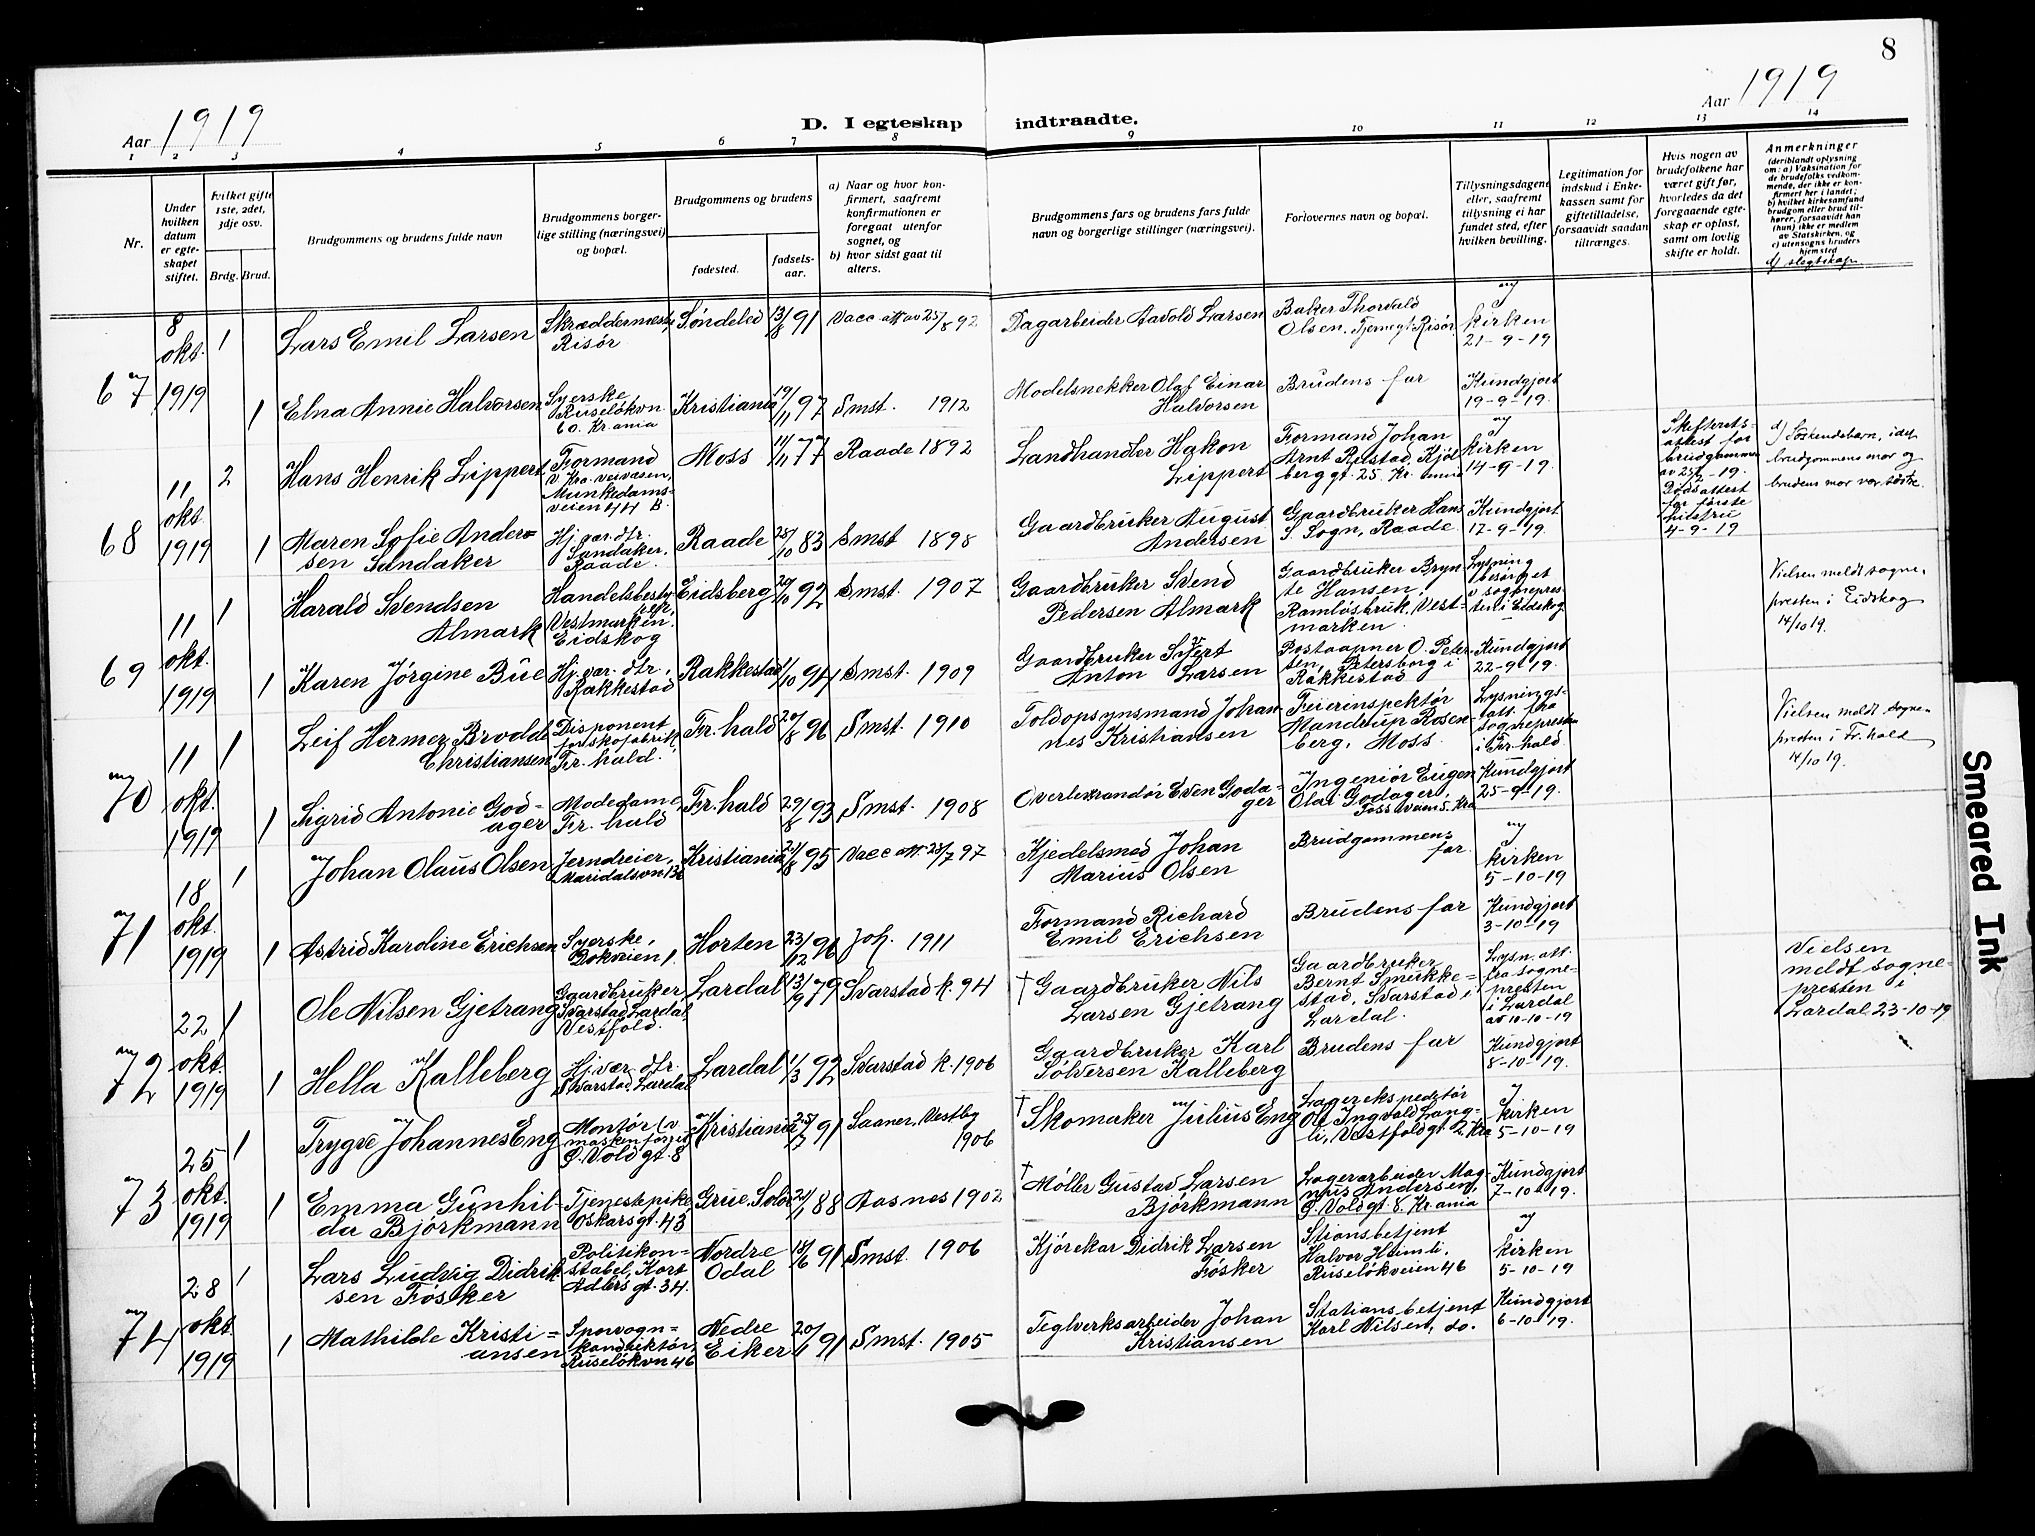 8
Aar 1919
Aar 1919
D. I egteskap indtraadte.
1 2 3 4 5 6 7 8 9 10 11 12 13 14
Nr.
Under hvilken datum er egteskapet stiftet.
Hvilket gifte 1ste, 2det, 3dje osv.
Brdg. Brud.
Brudgommens og brudens fulde navn
Brudgommens borgerlige stilling (næringsvei) og bopæl.
Brudgommens og brudens
fødested.
fødselsaar.
a) Naar og hvor konfirmert, saafremt konfirmationen er foregaat utenfor sognet, og
b) hvor sidst gaat til alters.
Brudgommens fars og brudens fars fulde navn og borgerlige stillinger (næringsvei).
Forlovernes navn og bopæl.
Tillysningsdagene eller, saafremt tillysning ei har fundet sted, efter hvilken bevilling.
Legitimation for indskud i Enkekassen samt for giftetilladelse, forsaavidt saadan tiltrænges.
Hvis nogen av brudefolkene har været gift før, hvorledes da det foregaaende egteskap er opløst, samt om lovlig skifte er holdt.
Anmerkninger
(deriblandt oplysning om: a) Vaksination for de brudefolks vedkommende, der ikke er konfirmert her i landet; b) hvilket kirkesamfund brudgom eller brud tilhører, forsaavidt han (hun) ikke er medlem av Statskirken, og c) utensogns bruders hjemsted
d) slegtskap
67
8 okt. 1919
1 Lars Emil Larsen
Skræddermester Risør
Søndeled 13/8 91
Vacc. att. av 25/8 92
Dagarbeider Aavold Larsen
Baker Thorvald Olsen, Tjernegt. Risør
I kirken 21-9-19
1 Elna Annie Halvorsen
Syerske Ruseløkvn. 60. Kr.ania
Kristiania 19/11 97
Smst. 1912
Modelsnekker Olaf Einar Halvorsen
Brudens far
Kundgjort 19-9-19.
68
11 okt. 1919
2 Hans Henrik Lippert
Formand v. Kra. veivæsen, Munkedamsveien 44 B.
Moss 11/11 77
Raade 1892
Landhandler Hakon Lippert
Formand Johan Arnt Rustad, Kjølberggt. 25. Kr.ania
I kirken 14-9-19.
Skifterets-attest for brudgommen av 25/2-19. Dødsattest for første hustru 4-9-19
d) Søskendebarn, idet brudgommens mor og brudens mor var søstre.
1 Maren Sofie Andersen Sundaker
Hj. vær. dtr. Sandaker, Raade.
Raade 25/10 83
Smst 1898
Gaardbruker August Andersen
Gaardbruker Hans S. Sogn, Raade
Kundgjort 17-9-19.
69
11 okt. 1919
1 Harald Svendsen Almark
Handelsbestyrer, Vestmarken, Eidskog
Eidsberg 20/10 92
Smst. 1907
Gaardbruker Svend Pedersen Almark
Gaardbruker Brynte Hansen, Ramløsbruk, Vestmarken.
Lysning besørget v sognepresten i Eidskog
Vielsen meldt sognepresten i Eidskog 14/10 19.
1 Karen Jørgine Bue
Hj. vær. dtr. Rakkestad
Rakkestad 1/10 94
Smst. 1909
Gaardbruker Sivert Anton Larsen
Postaapner O. Petersen, Petersborg i Rakkestad
Kundgjort 22-9-19.
70
11 okt. 1919
1 Leif Hermez Brodde Christiansen
Disponent for skofabrik, Fr. hald.
Fr. hald 20/8 96
Smst. 1910
Toldopsynsmand Johannes Kristiansen
Feierinspektør Mandrup Rosenberg, Moss.
Lysnings-att. fra sognepresten i Fr. hald.
Vielsen meldt sognepresten i Fr. hald 14/10 19.
1 Sigrid Antonie Godager
Modedame, Fr. hald
Fr. hald 29/8 93
Smst. 1908
Overlexandør Even Godager
Ingeniør Eugen Olai Godager, Fossveien 5. Kra
Kundgjort 25-9-19.
71
18 okt. 1919
1 Johan Olaus Olsen
Jerndreier, Maridalsvn 136
Kristiania 95
Vacc. att. 23/7 97
Kjedelsmed Johan Marius Olsen
Brudgommens far.
I kirken 5-10-19
1 Astrid Karoline Erichsen
Syerske, Dokveien 1.
Horten 23/12 96
Joh. 1911
Formand Richard Emil Erichsen
Brudens far
Kundgjort 3-10-19
72
22 okt. 1919
1 Ole Nilsen Gjetrang
Gaardbruker Svarstad, Lardal, Vestfold.
Lardal 13/9 79
Svarstad k. 94
† Gaardbruker Nils Larsen Gjetrang
Gaardbruker Bernt Smukkestad, Svarstad i Lardal.
Lysn. att. fra sognepresten i Lardal av 10-10-19
Vielsen meldt sognepresten i Lardal 23-10-19
1 Hella Kalleberg
Hj. vær. dtr. Svarstad, Lardal
Lardal 1/3 92
Svarstad k. 1906
Gaardbruker Karl Sølversen Kalleberg
Brudens far
Kundgjort 8-10-19.
73
25 okt. 1919
1 Trygve Johannes Eng
Montør (v. maskenforret.) Ø. Voldgt. 8
Kristiania 25/7 91
Saaner, Vestby 1906
† Skomaker Julius Eng
Lagerekspeditør Olf Ingvald Langli, Vestfoldgt. 2 Kra
I kirken 5-10-19
1 Emma Gunhilda Bjørkmann
Tjenestepike Oskarsgt. 43
Grue, Solør 24/1 88
Aasnes 1902
† Møller Gustav Larsen Bjørkmann
Lagerarbeider Magnus Andersen, Ø. Voldgt. 8. Kr.ania
Kundgjort 7-10-19.
74
28 okt 1919
1 Lars Ludvig Didriksen Føsker
Politikonstabel, Kort Adlersgt. 34.
Nordre Odal 18/6 91
Smst. 1906
Kjørekar Didrik Larsen Føsker
Stionsbetjent Halvor Heimli, Ruseløkveien 46
I kirken 5-10-19
1 Mathilde Kristiansen
Sporvognskonduktør, Ruseløkvn 46
Nedre Eiker 20/1 91
Smst. 1905
Teglverksarbeider Johan Kristiansen
Stationsbetjent Karl Nilsen, do.
Kundgjort 6-10-19.
Smeared Ink